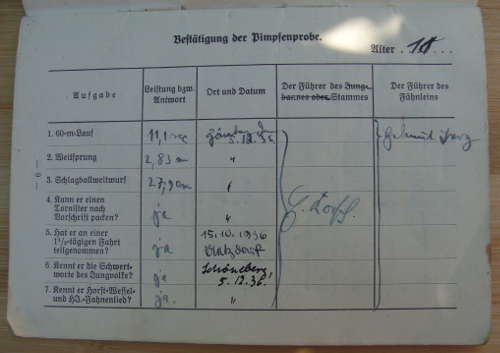 Bestätigung der Pimpfenprobe.
Alter . 10 . . .
Aufgabe
Leistung bzw. Antwort
Ort und Datum
Der Führer des Jung-
bannes oder Stammes
Der Führer des
Fähnleins
1. 60-m-Lauf
11,1
5.12.36
2. Weitsprung
2,83 m
"
3. Schlagballweitwurf
27,90 m
"
4. Kann er einen
Tornister nach
Vorschrift packen?
ja
"
5. Hat er an einer
1½-tägigen Fahrt
teilgenommen?
ja
15.10.1936
6. Kennt er die Schwert-
worte des Jungvolks?
ja
Schöneberg,
5.12.36.
7. Kennt er Horst-Wessel-
und HJ.-Fahnenlied?
ja.
"
— 6 —